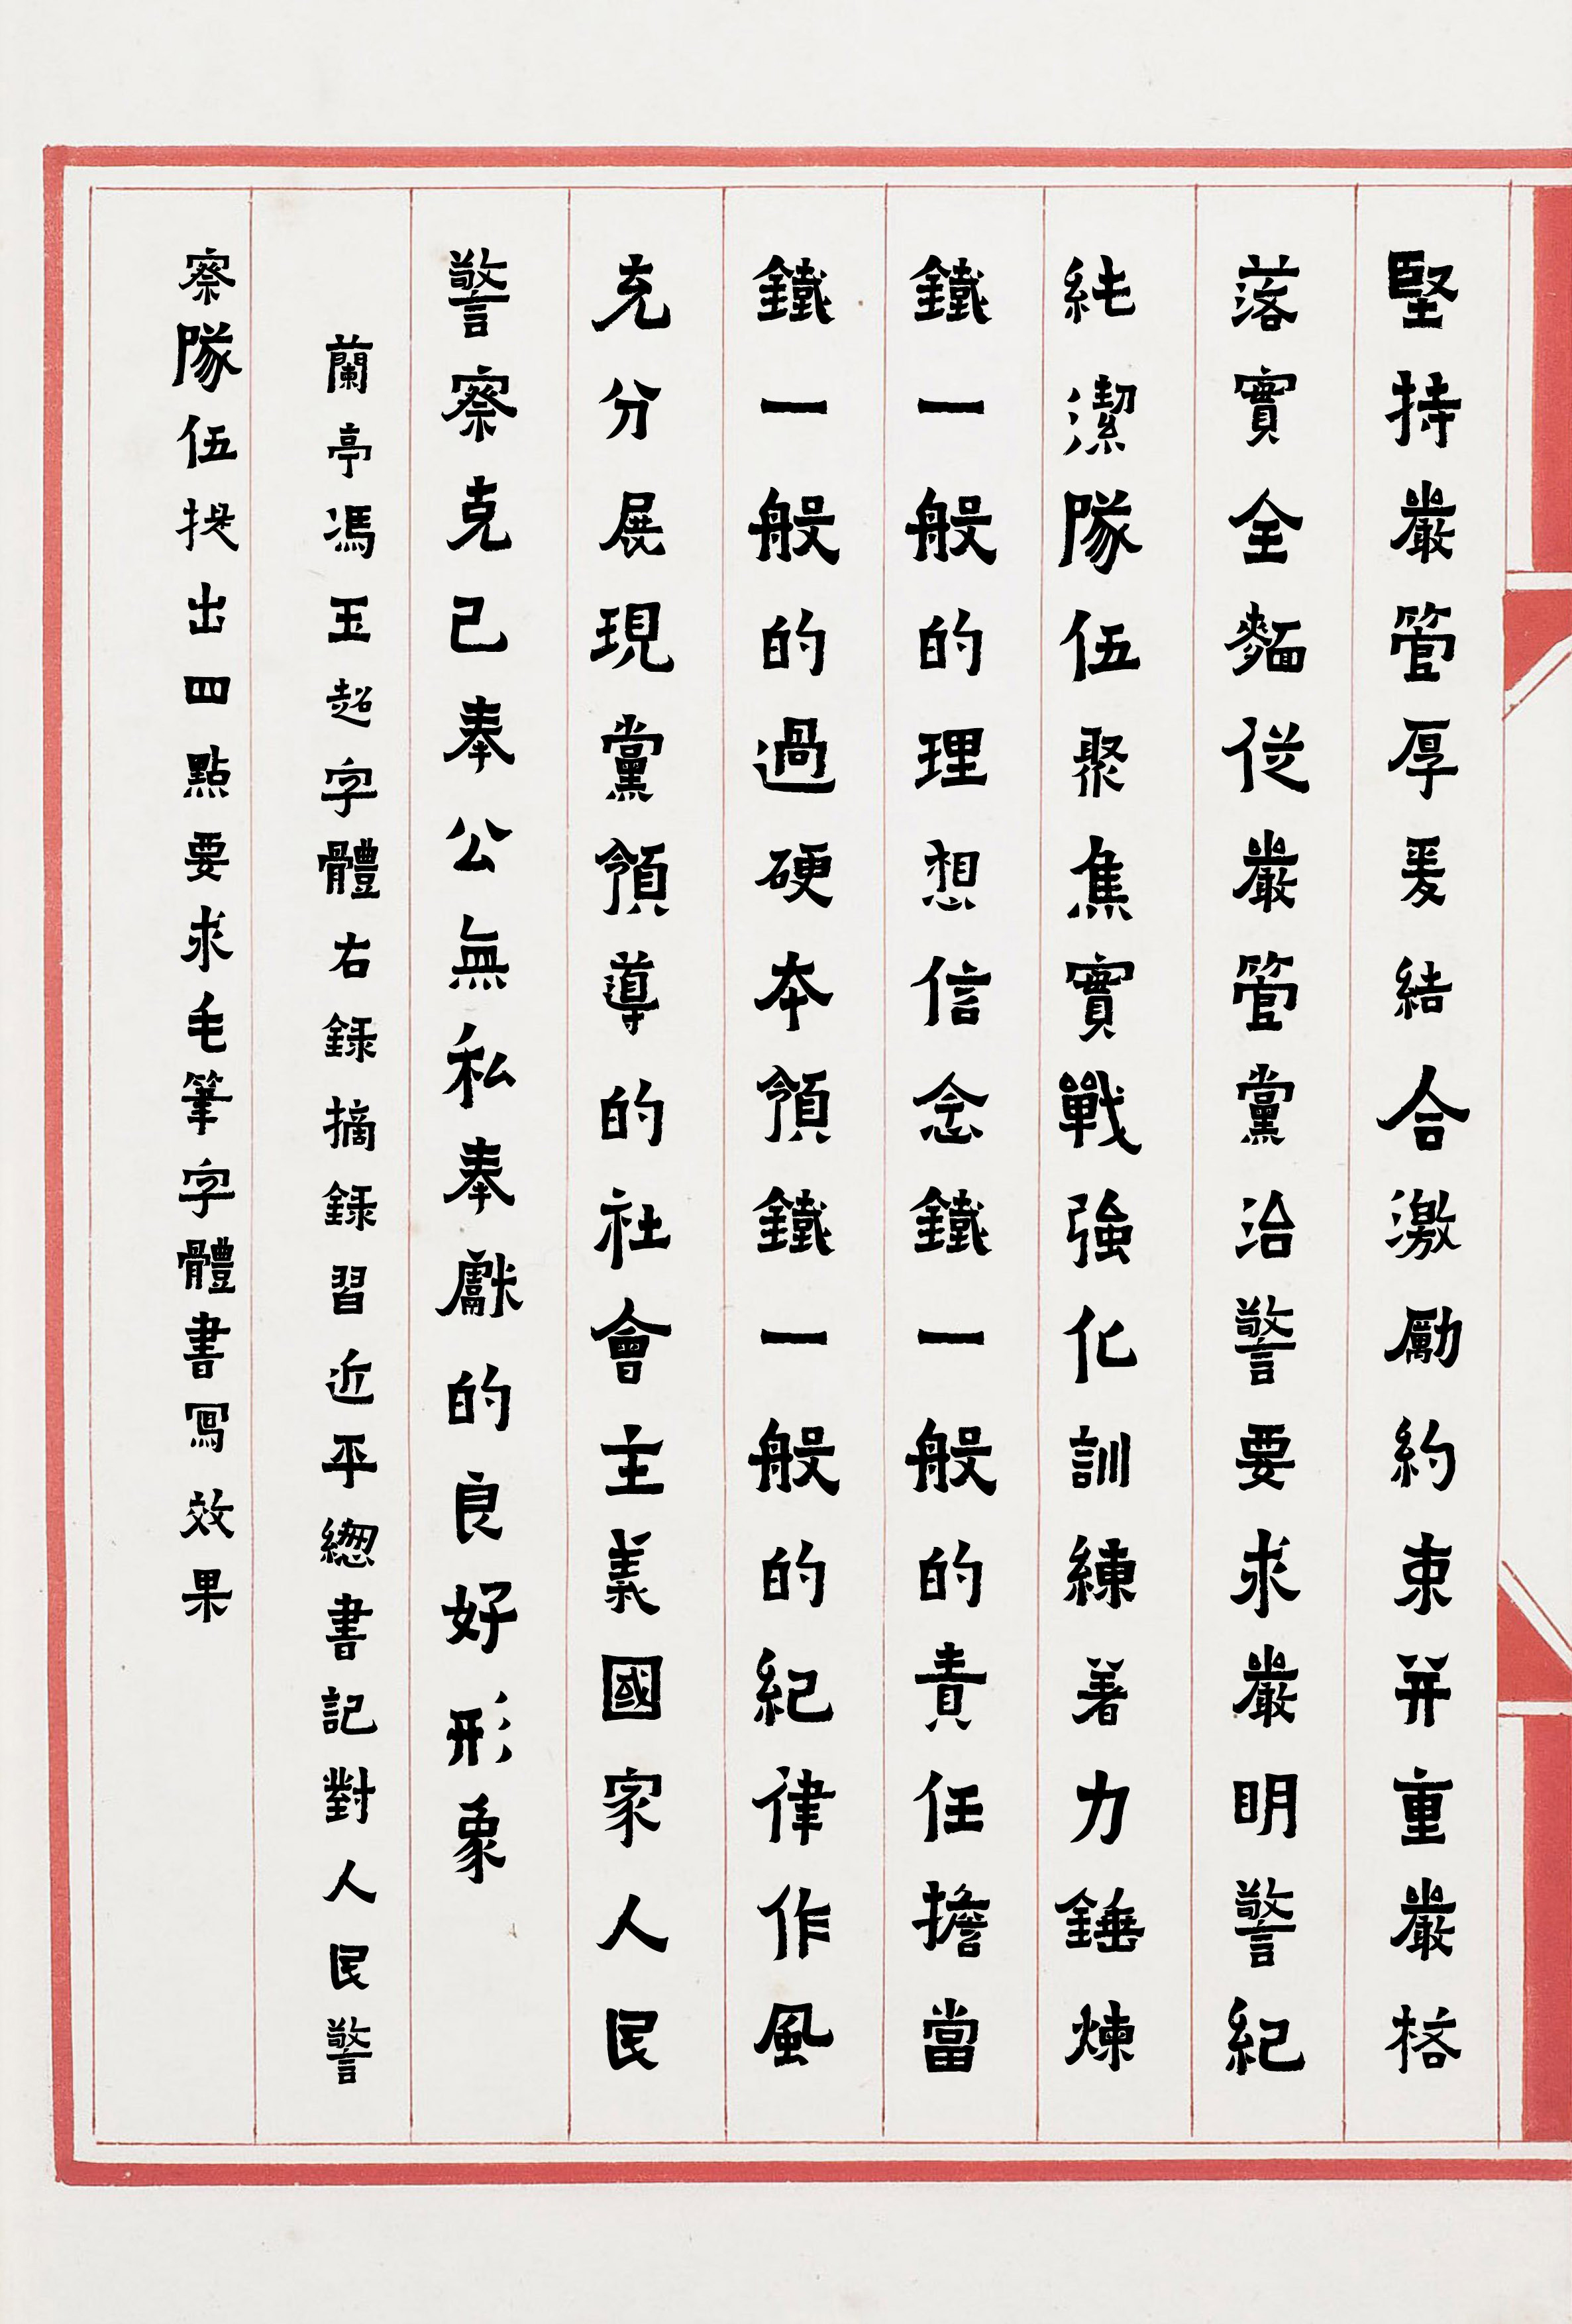 堅持嚴管厚爰結合激勵約束并重嚴格
落實全麵從嚴管黨治警要求嚴明警紀
純潔隊伍聚焦實戰強化訓練著力錘煉
鐵一般的理想信念鐵一般的責任擔當
鐵一般的過硬本領鐵一般的紀律作風
充分展現黨領導的社會主義國家人民
警察克己奉公無私奉獻的良好形象
蘭亭馮玉超字體右錄摘錄習近平總書記對人民警
察隊伍提出四點要求毛筆字體書寫效果